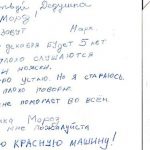 Дедушка
Мороз!
зовут Марк.
декабря будет 5 лет
плохо слушаются
и ножки.
устаю. Но я стараюсь.
плохо говорю.
не помогает во всём.
Мороз
мне пожалуйста
КРАСНУЮ МАШИНУ!